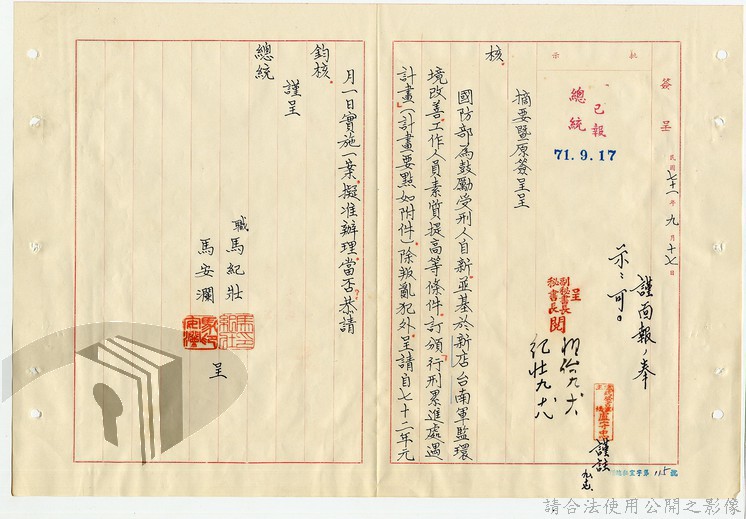 簽呈
民國七十一年九月十七日
批示
已報
總統
71.9.17
謹面報、奉
示:可。
呈
副秘書長
秘書長 閱
謹註
摘要暨原簽呈呈
核。
國防部為鼓勵受刑人自新,並基於新店台南軍監環
境改善,工作人員素質提高等條件,訂頒「行刑累進處遇
計畫」(計畫要點如附件)除叛亂犯外,呈請自七十二年元
月一日實施一案,擬准辦理,當否?恭請
鈞核。
謹呈
總統
職 馬紀壯
馬安瀾
呈
字第115號
請合法使用公開之影像